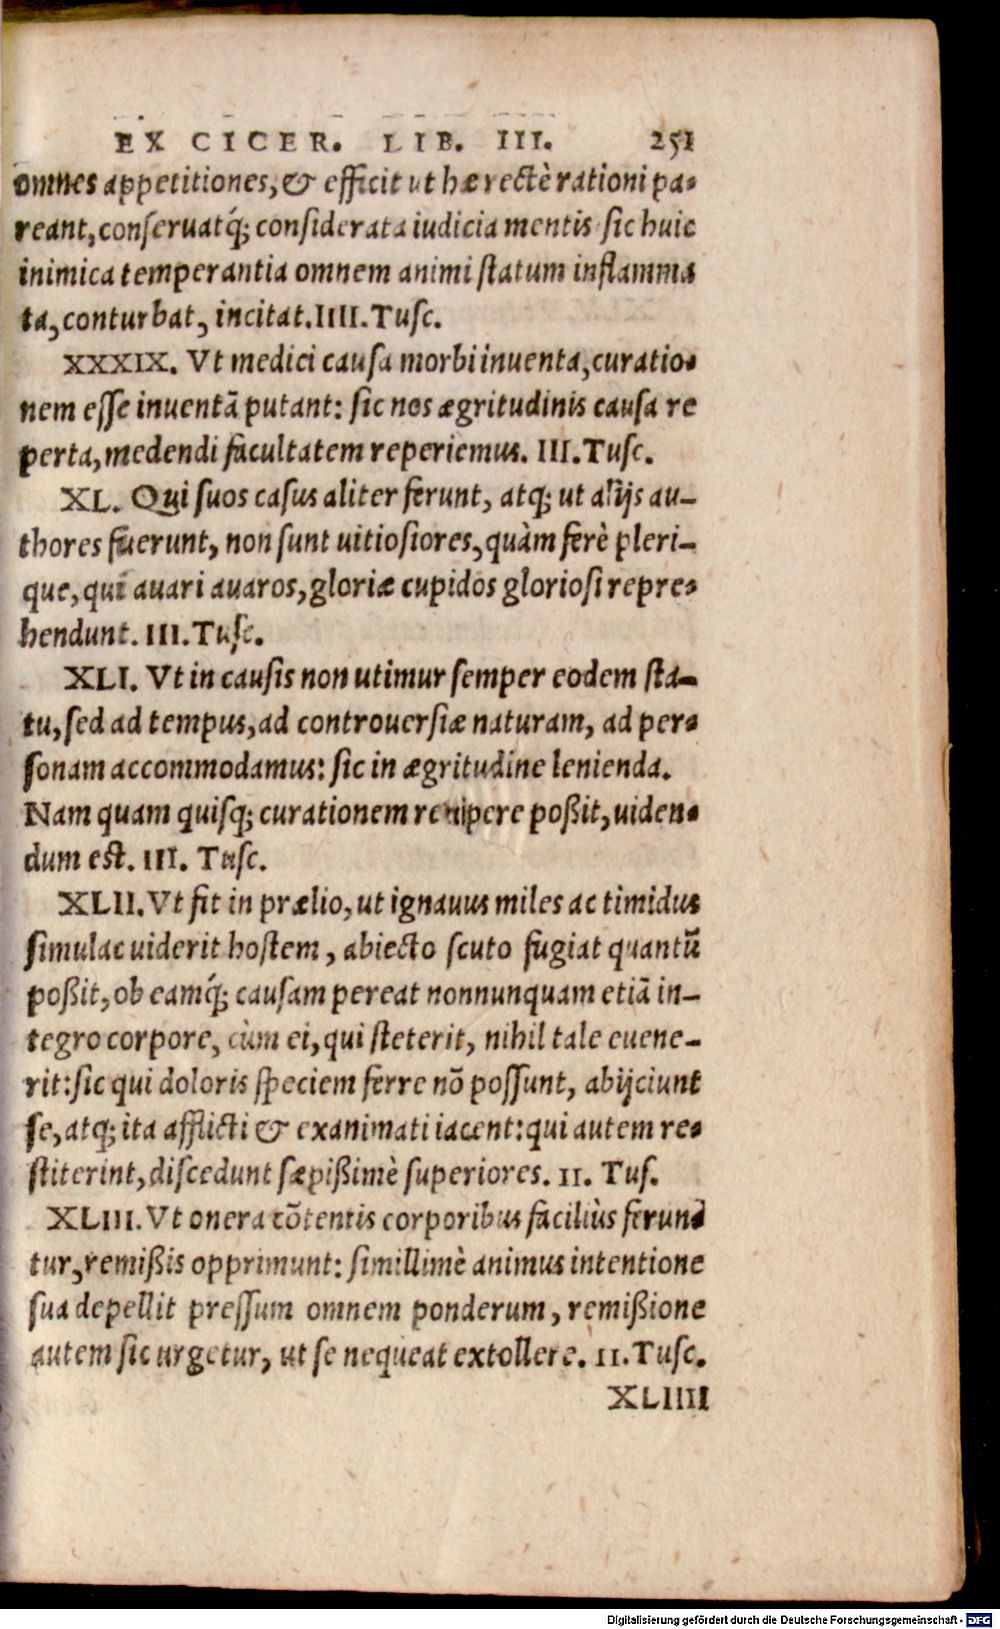 EX CICER. LIB. III. 251
omnes appetitiones, & efficit ut hæ rectè rationi pa-
reant, conseruatq́; considerata iudicia mentis: sic huic
inimica temperantia omnem animi statum inflamma
ta, conturbat, incitat. IIII. Tusc.
XXXIX. Vt medici causa morbi inuenta, curatio-
nem esse inuentā putant: sic nos ægritudinis causa re
perta, medendi facultatem reperiemus. III. Tusc.
XL. Qui suos casus aliter ferunt, atq; ut alijs au-
thores fuerunt, non sunt uitiosiores, quàm ferè pleri-
que, qui auari auaros, gloriæ cupidos gloriosi repre-
hendunt. III. Tusc.
XLI. Vt in causis non utimur semper eodem sta-
tu, sed ad tempus, ad controuersiæ naturam, ad per-
sonam accommodamus: sic in ægritudine lenienda.
Nam quam quisq; curationem recipere poßit, uiden-
dum est. III. Tusc.
XLII. Vt fit in prælio, ut ignauus miles ac timidus
simulac uiderit hostem, abiecto scuto fugiat quantū
poßit, ob eamq́; causam pereat nonnunquam etiā in-
tegro corpore, cùm ei, qui steterit, nihil tale euene-
rit: sic qui doloris speciem ferre nō possunt, abijciunt
se, atq; ita afflicti & exanimati iacent: qui autem re-
stiterint, discedunt sæpißimè superiores. II. Tus.
XLIII. Vt onera cōtentis corporibus faciliùs ferun-
tur, remißis opprimunt: simillimè animus intentione
sua depellit pressum omnem ponderum, remißione
autem sic urgetur, ut se nequeat extollere. II. Tusc.
XLIIII
Digitalisierung gefördert durch die Deutsche Forschungsgemeinschaft - DFG